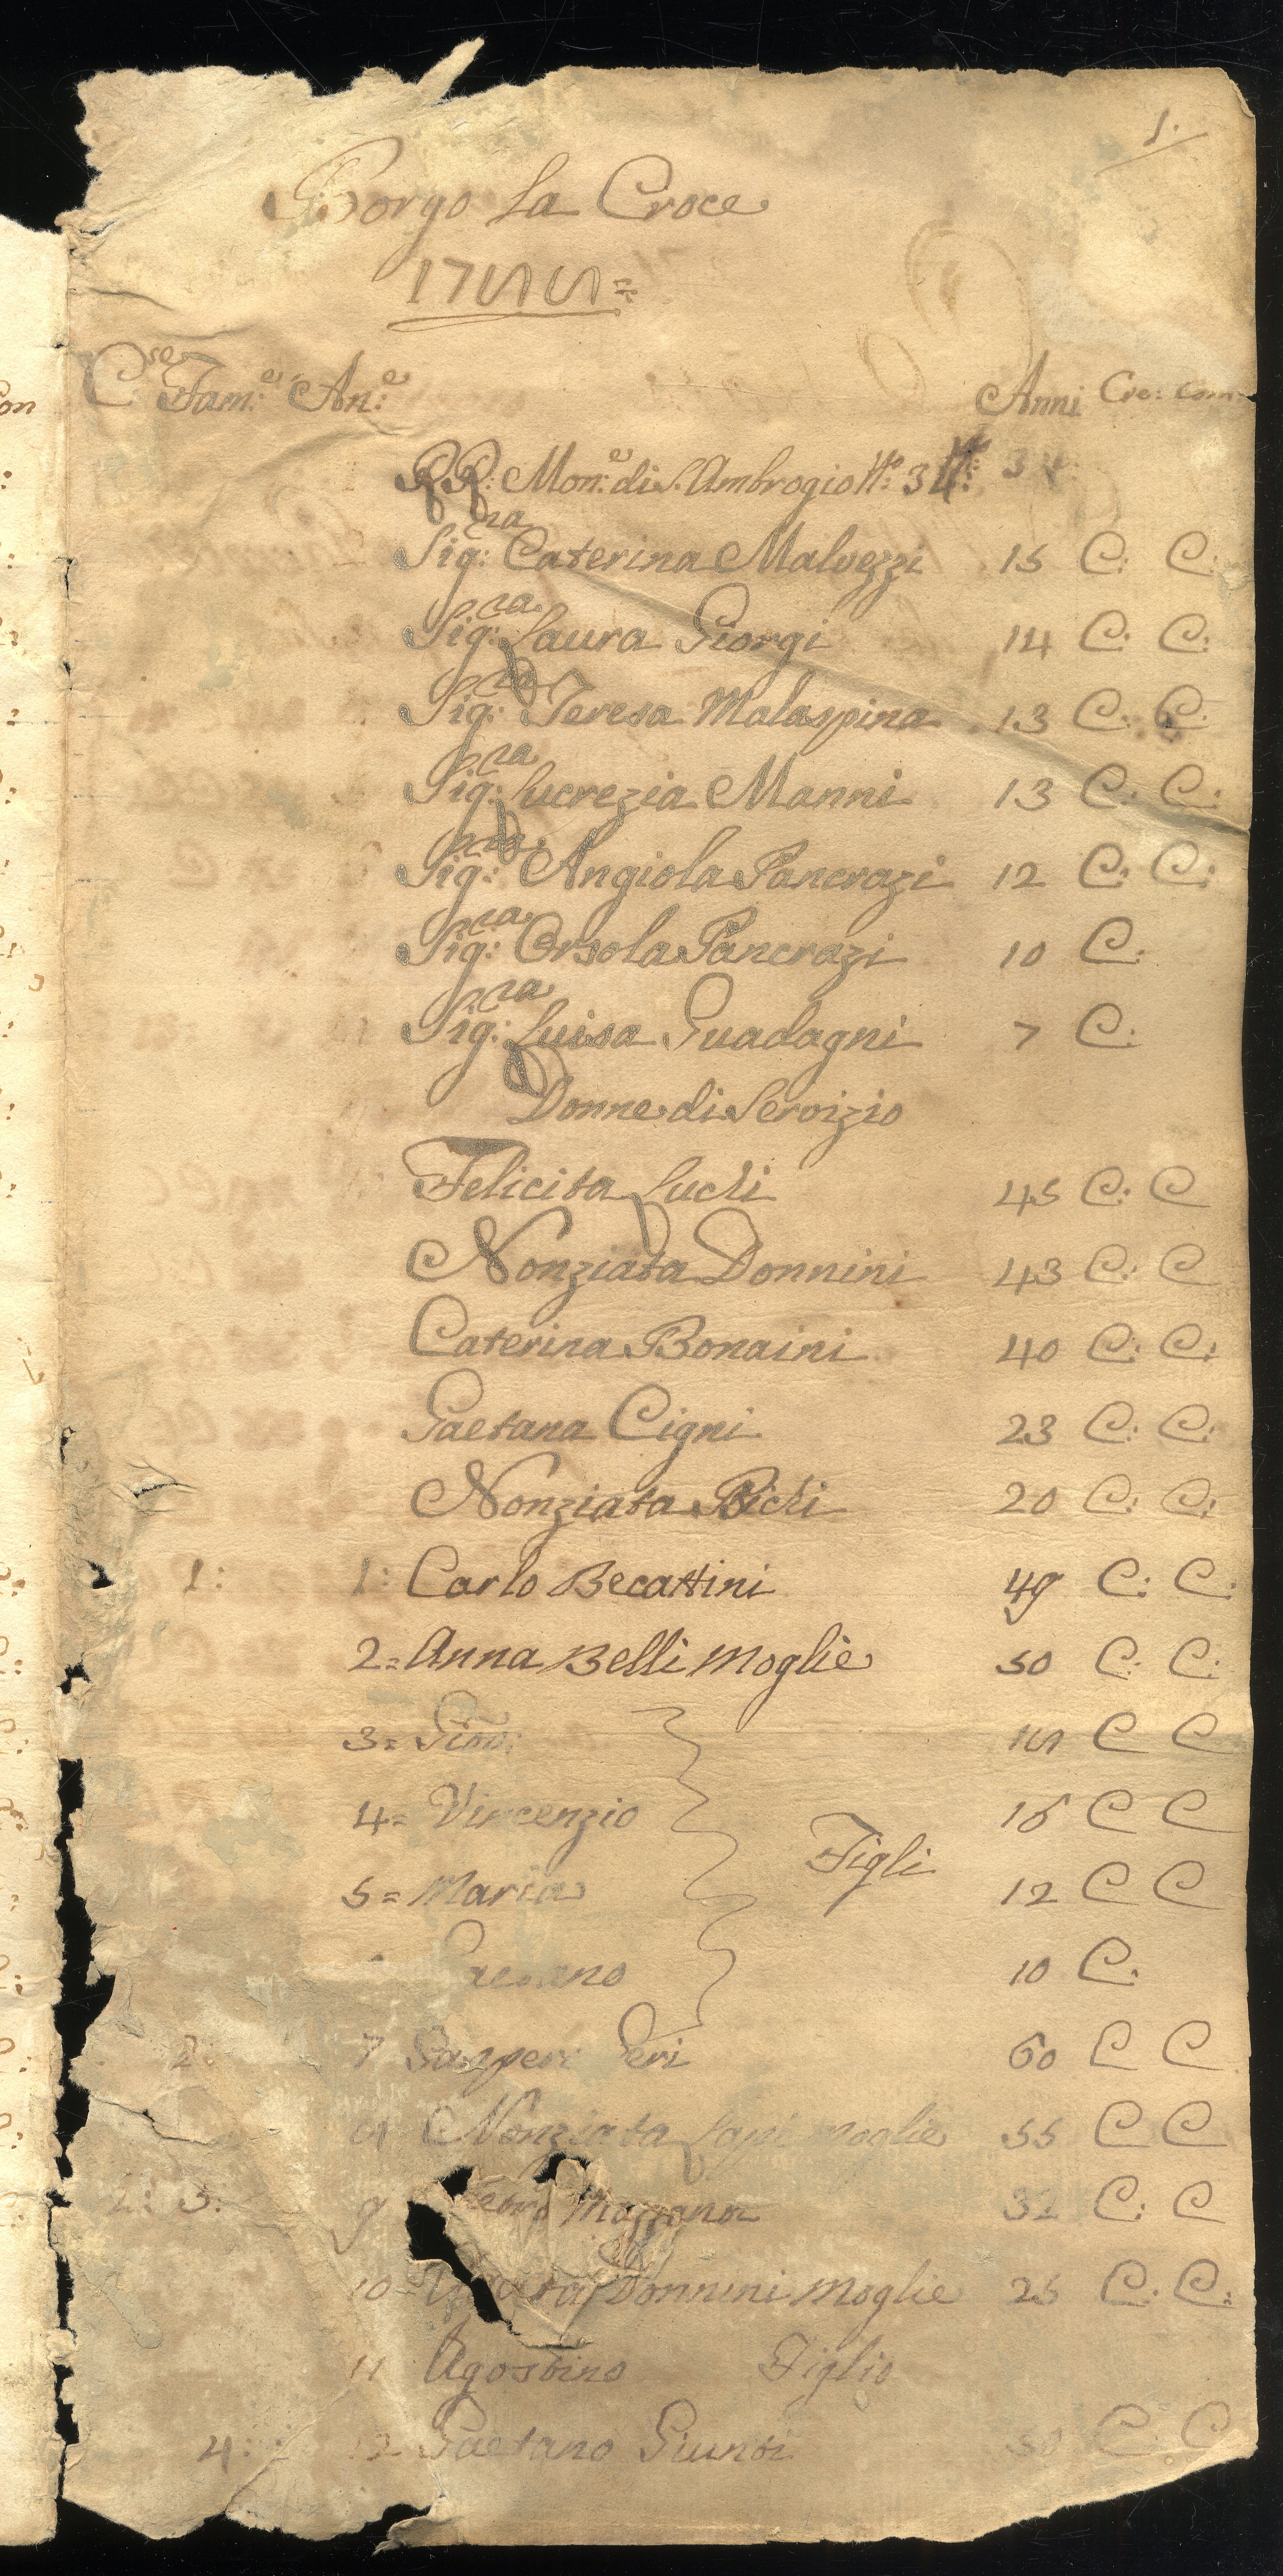 1.
Borgo La Croce
1755=
C.se Fam.e An.e Anni Cre: Com:
RR: Mon.e di S. Ambrogio N.o 34:
Sig:ra Caterina Malvezzi 15 C: C:
Sig:ra Laura Giorgi 14 C: C:
Sig:ra Teresa Malaspina 13 C: C:
Sig:ra Lucrezia Manni 13 C: C:
Sig:ra Angiola Pancrazi 12 C: C:
Sig:ra Orsola Pancrazi 10 C:
Sig:ra Luisa Guadagni 7 C:
Donne di Servizio
Felicita Luchi 45 C: C
Nonziata Donnini 43 C: C
Caterina Bonaini 40 C: C:
Gaetana Cigni 23 C: C:
Nonziata Richi 20 C: C:
1: 1: Carlo Becattini 49 C: C:
2= Anna Belli Moglie 50 C: C:
3= Giov: C C
4= Vincenzio 16 C C
Figli
5= Maria 12 C C
Gaetano 10 C:
2: 7 Gasperi Geri 60 C C
Nonziata Lapi moglie 55 C C
3: 9 32 C: C
10= Donnini Moglie 25 C: C:
11 Agostino Figlio
4: 12 Gaetano Giunti 50 C: C